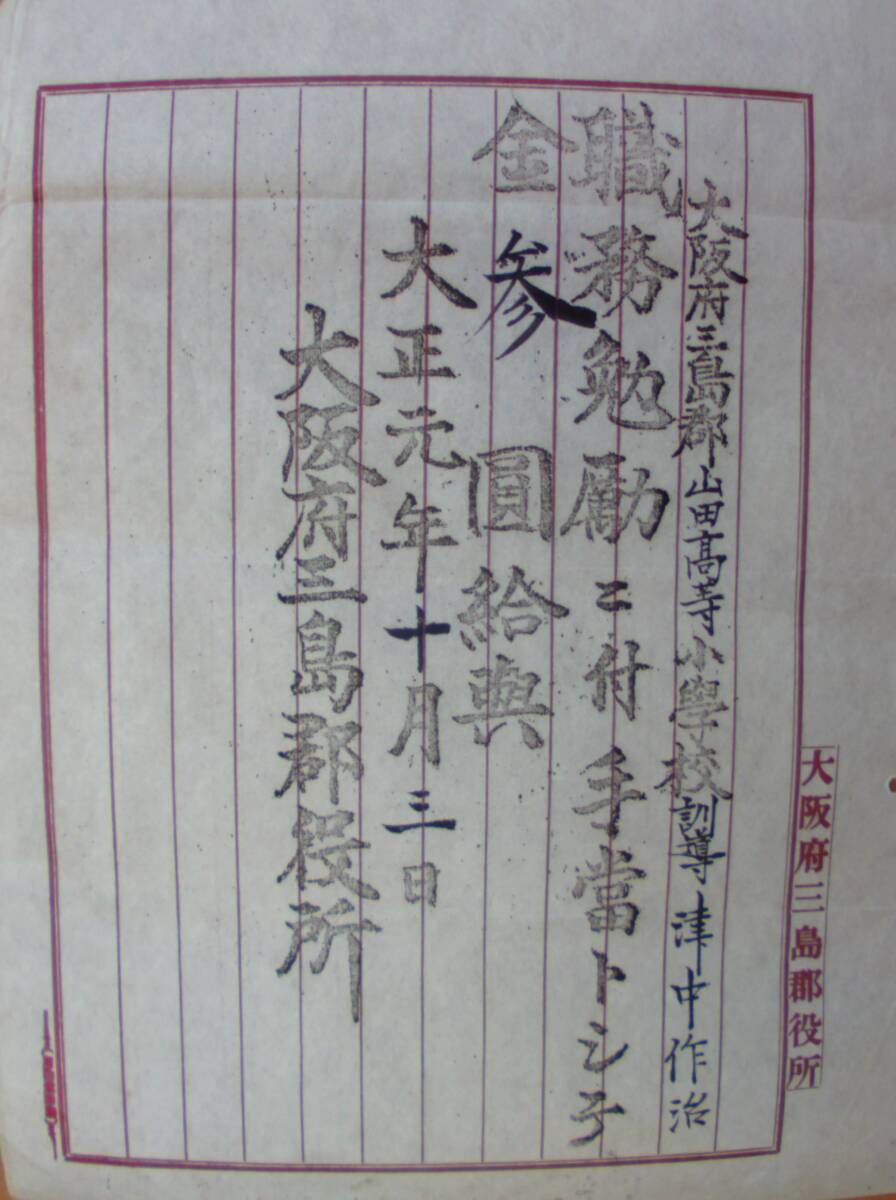 大阪府三島郡山田高等小學校訓導津中作治
職務勉励ニ付手當トシテ
金参圓給與
大正元年十月三日
大阪府三島郡役所
大阪府三島郡役所